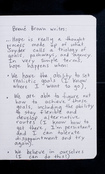 Brené Brown writes:
"Hope is really a thought
process made up of what
Snyder calls a trilogy of
goals, pathways, and agency.
In very simple terms,
hope happens when:
• We have the ability to set
realistic goals (I know
where I want to go).
• We are able to figure out
how to achieve those
goals, including the ability
to stay flexible and
develop alternative
routes (I know how to
get there, I'm persistent,
and I can tolerate
disappointment and try
again).
• We believe in ourselves
(I can do this!)